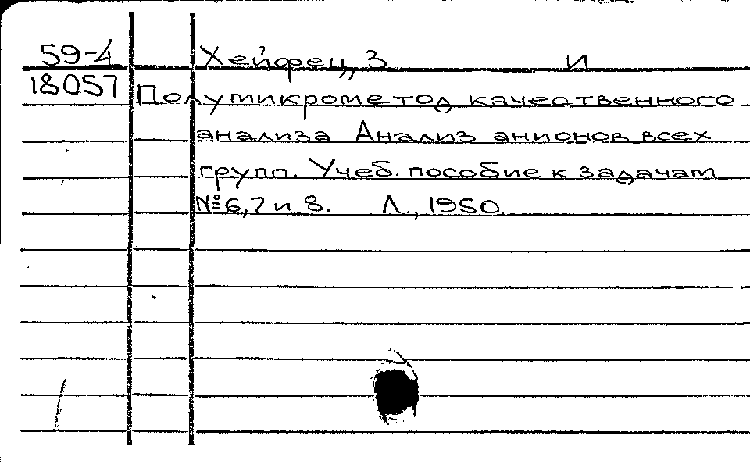 59-4 Хейфец, З И
18057 Полумикрометод качественного
анализа Анализ анионов всех
групп. Учеб. пособие к задачам
№6,7 и 8. Л., 1950